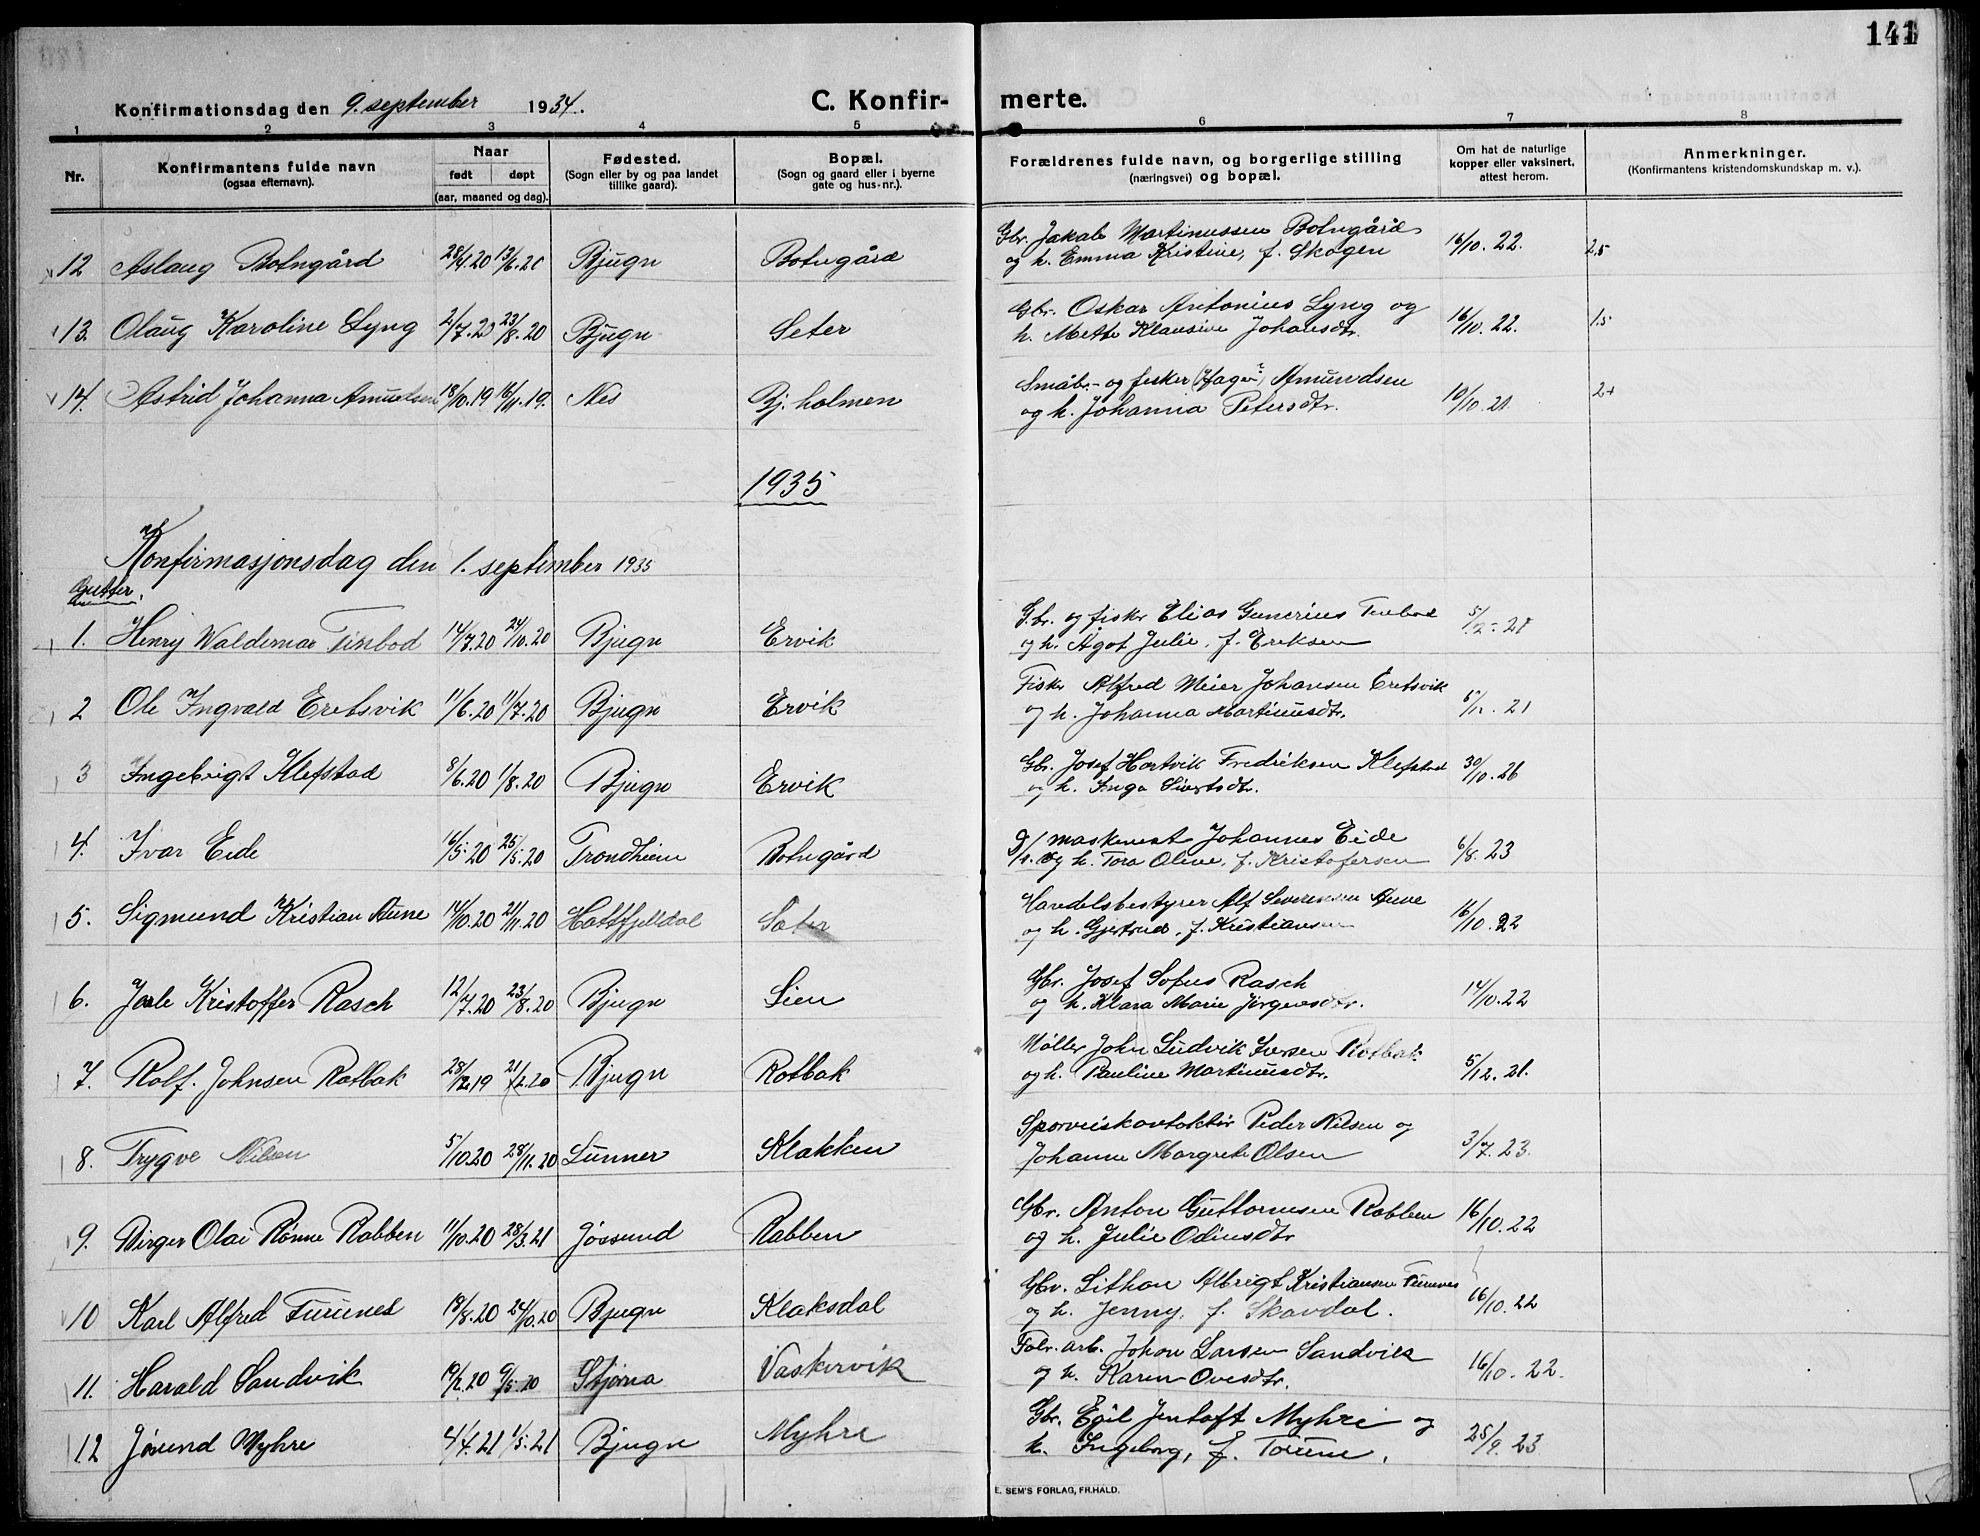 141
Konfirmationsdag den 9. september 1934.
C. Konfir- merte.
1 2 3 4 5 6 7 8
Nr.
Konfirmantens fulde navn
(ogsaa efternavn).
Naar
født døpt
(aar, maaned og dag).
Fødested.
(Sogn eller by og paa landet
tillike gaard).
Bopæl.
(Sogn og gaard eller i byerne
gate og hus-nr.).
Forældrenes fulde navn, og borgerlige stilling
(næringsvei) og bopæl.
Om hat de naturlige
kopper eller vaksinert,
attest herom.
Anmerkninger.
(Konfirmantens kristendomskundskap m. v.).
Gbr. Jakob Martinussen Botngård
12 Aslaug Botngård 28/4.20 13/6.20 Bjugn Botngård og h. Emma Kristine, f. Skogen 16/10.22. 2,5
Gbr. Oskar Antonius Lyng og
13. Olaug Karoline Lyng 2/7.20 23/8.20 Bjugn Seter h. Mette Klausine Johansdtr. 16/10.22. 1.5
Småbr.- og fisker (Hager?) Amundsen
14. Astrid Johanna Amundsen 18/10.19 16/11.19. Nes Bj. holmen og h. Johanna Petersdtr. 10/10.21. 2+
1935
Konfirmasjonsdag den 1. september 1935
Gutter.
Gbr. og fisker Elias Gunerius Tinbod
1. Henry Waldemar Tinbod 14/7.20 24/10.20 Bjugn Ervik og h. Ågot Julie, f. Eriksen 5/12.21
Fisker Alfred Meier Johansen Eretsvik
2 Ole Ingvald Eretsvik 11/6.20 11/7.20 Bjugn Ervik og h. Johanna Martinusdtr. 5/12.21
Gbr. Josef Hartvik Fredriksen Klefstad
3 Ingebrigt Klefstad 8/6.20 1/8.20 Bjugn Ervik og h. Inga Sivertsdtr. 30/10.26
D/s. maskinist Johannes Eide
4. Ivar Eide 16/5.20 25/5.20 Trondheim Botngård og h. Tora Oline, f. Kristofersen 6/8.23
Handelsbestyrer Alf Severinsen Aune
5. Sigmund Kristian Aune 14/10.20 21/11.20 Hattfjelldal Sæter og h. Gjertrud, f. Kristiansen 16/10.22
Gbr. Josef Sofus Rasch
6. Jarle Kristoffer Rasch 12/7.20 23/8.20 Bjugn Lien og h. Klara Marie Jørgensdtr. 14/10.22
Møller John Ludvik Iversen Rotbak
7. Rolf. Johnsen Rotbak 28/12.19 21/2.20 Bjugn Rotbak og h. Pauline Martinusdtr. 5/12.21.
Sporveiskonduktør Peder Nilsen og
8. Trygve Nilsen 5/10.20 28/11.20 Lunner Klakken Johanne Margrete Olsen 3/7.23.
Gbr. Anton Guttormsen Rabben
9. Birger Olai Rønne Rabben 11/10.20 28/3.21 Jøssund Rabben og h. Julie Odinsdtr 16/10.22
Gbr. Sithon Albrigt Kristiansen Furunes
10 Karl Alfred Furunes 18/8.20 24/10.20 Bjugn Klaksdal og h. Jenny, f. Skavdal. 16/10.22
Fabr. arb. Johan Larsen Sandvik
11. Harald Sandvik 19/2.20 9/5.20 Stjørna Vaskervik og h. Karen Ovesdtr. 16/10.22.
Gbr. Egil Jentoft Myhre og
12 Jørund Myhre 4/4.21 1/5.21 Bjugn Myhre h. Ingeborg, f. Torum. 25/9.23
E. SEM'S FORLAG, FR.HALD.